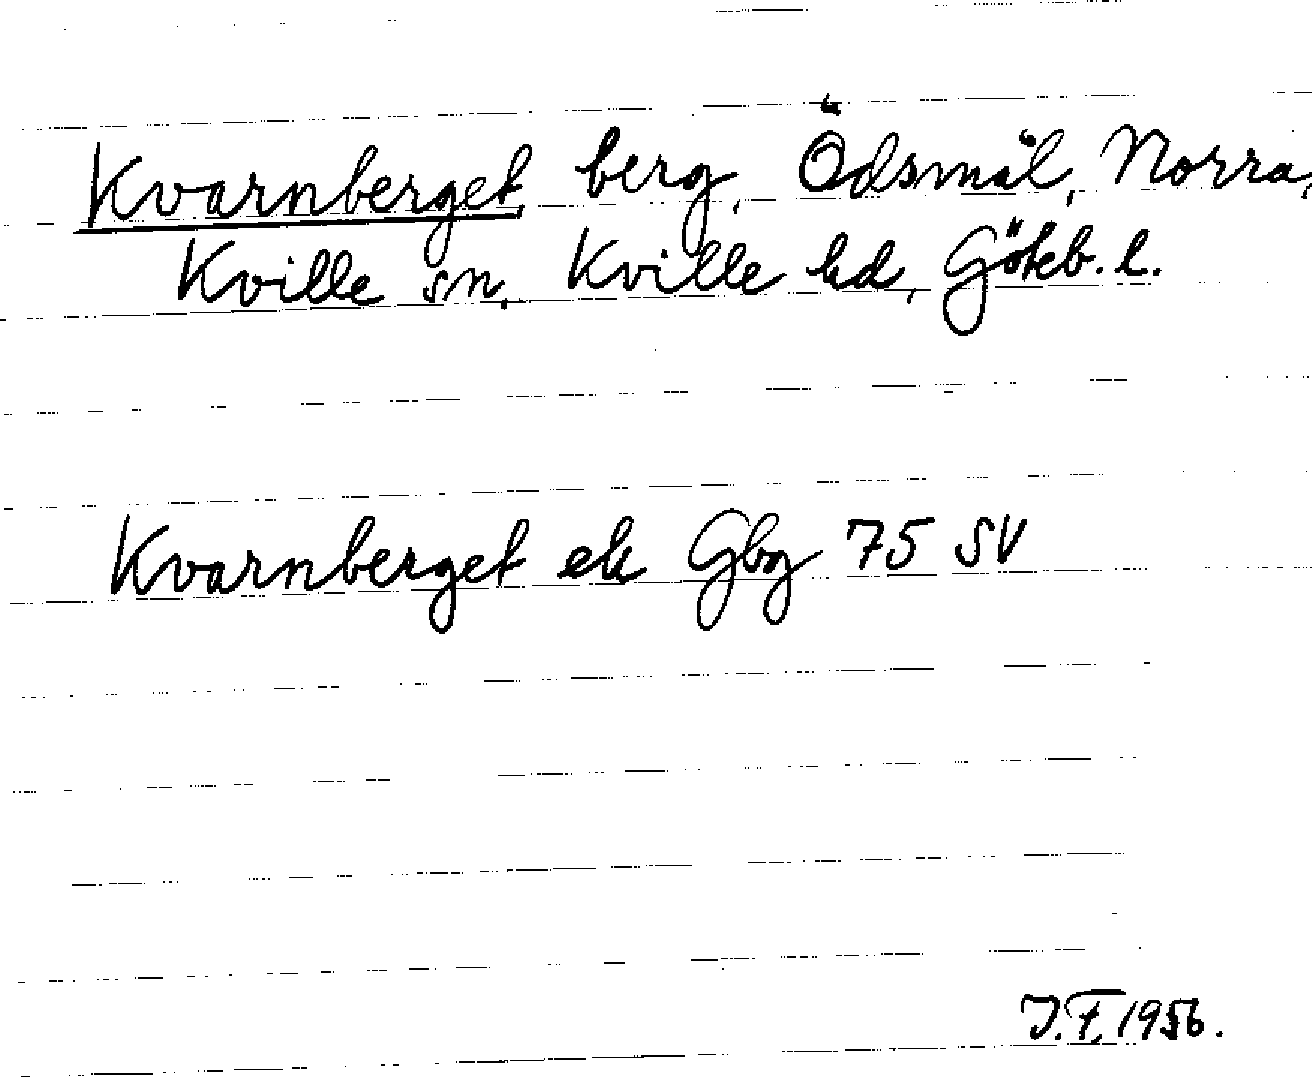 Kvarnberget, berg, Ödsmål, Norra,
Kville sn, Kville hd, Göteb. l.
Kvarnberget ek Gbg 75 SV
J.F. 1956.